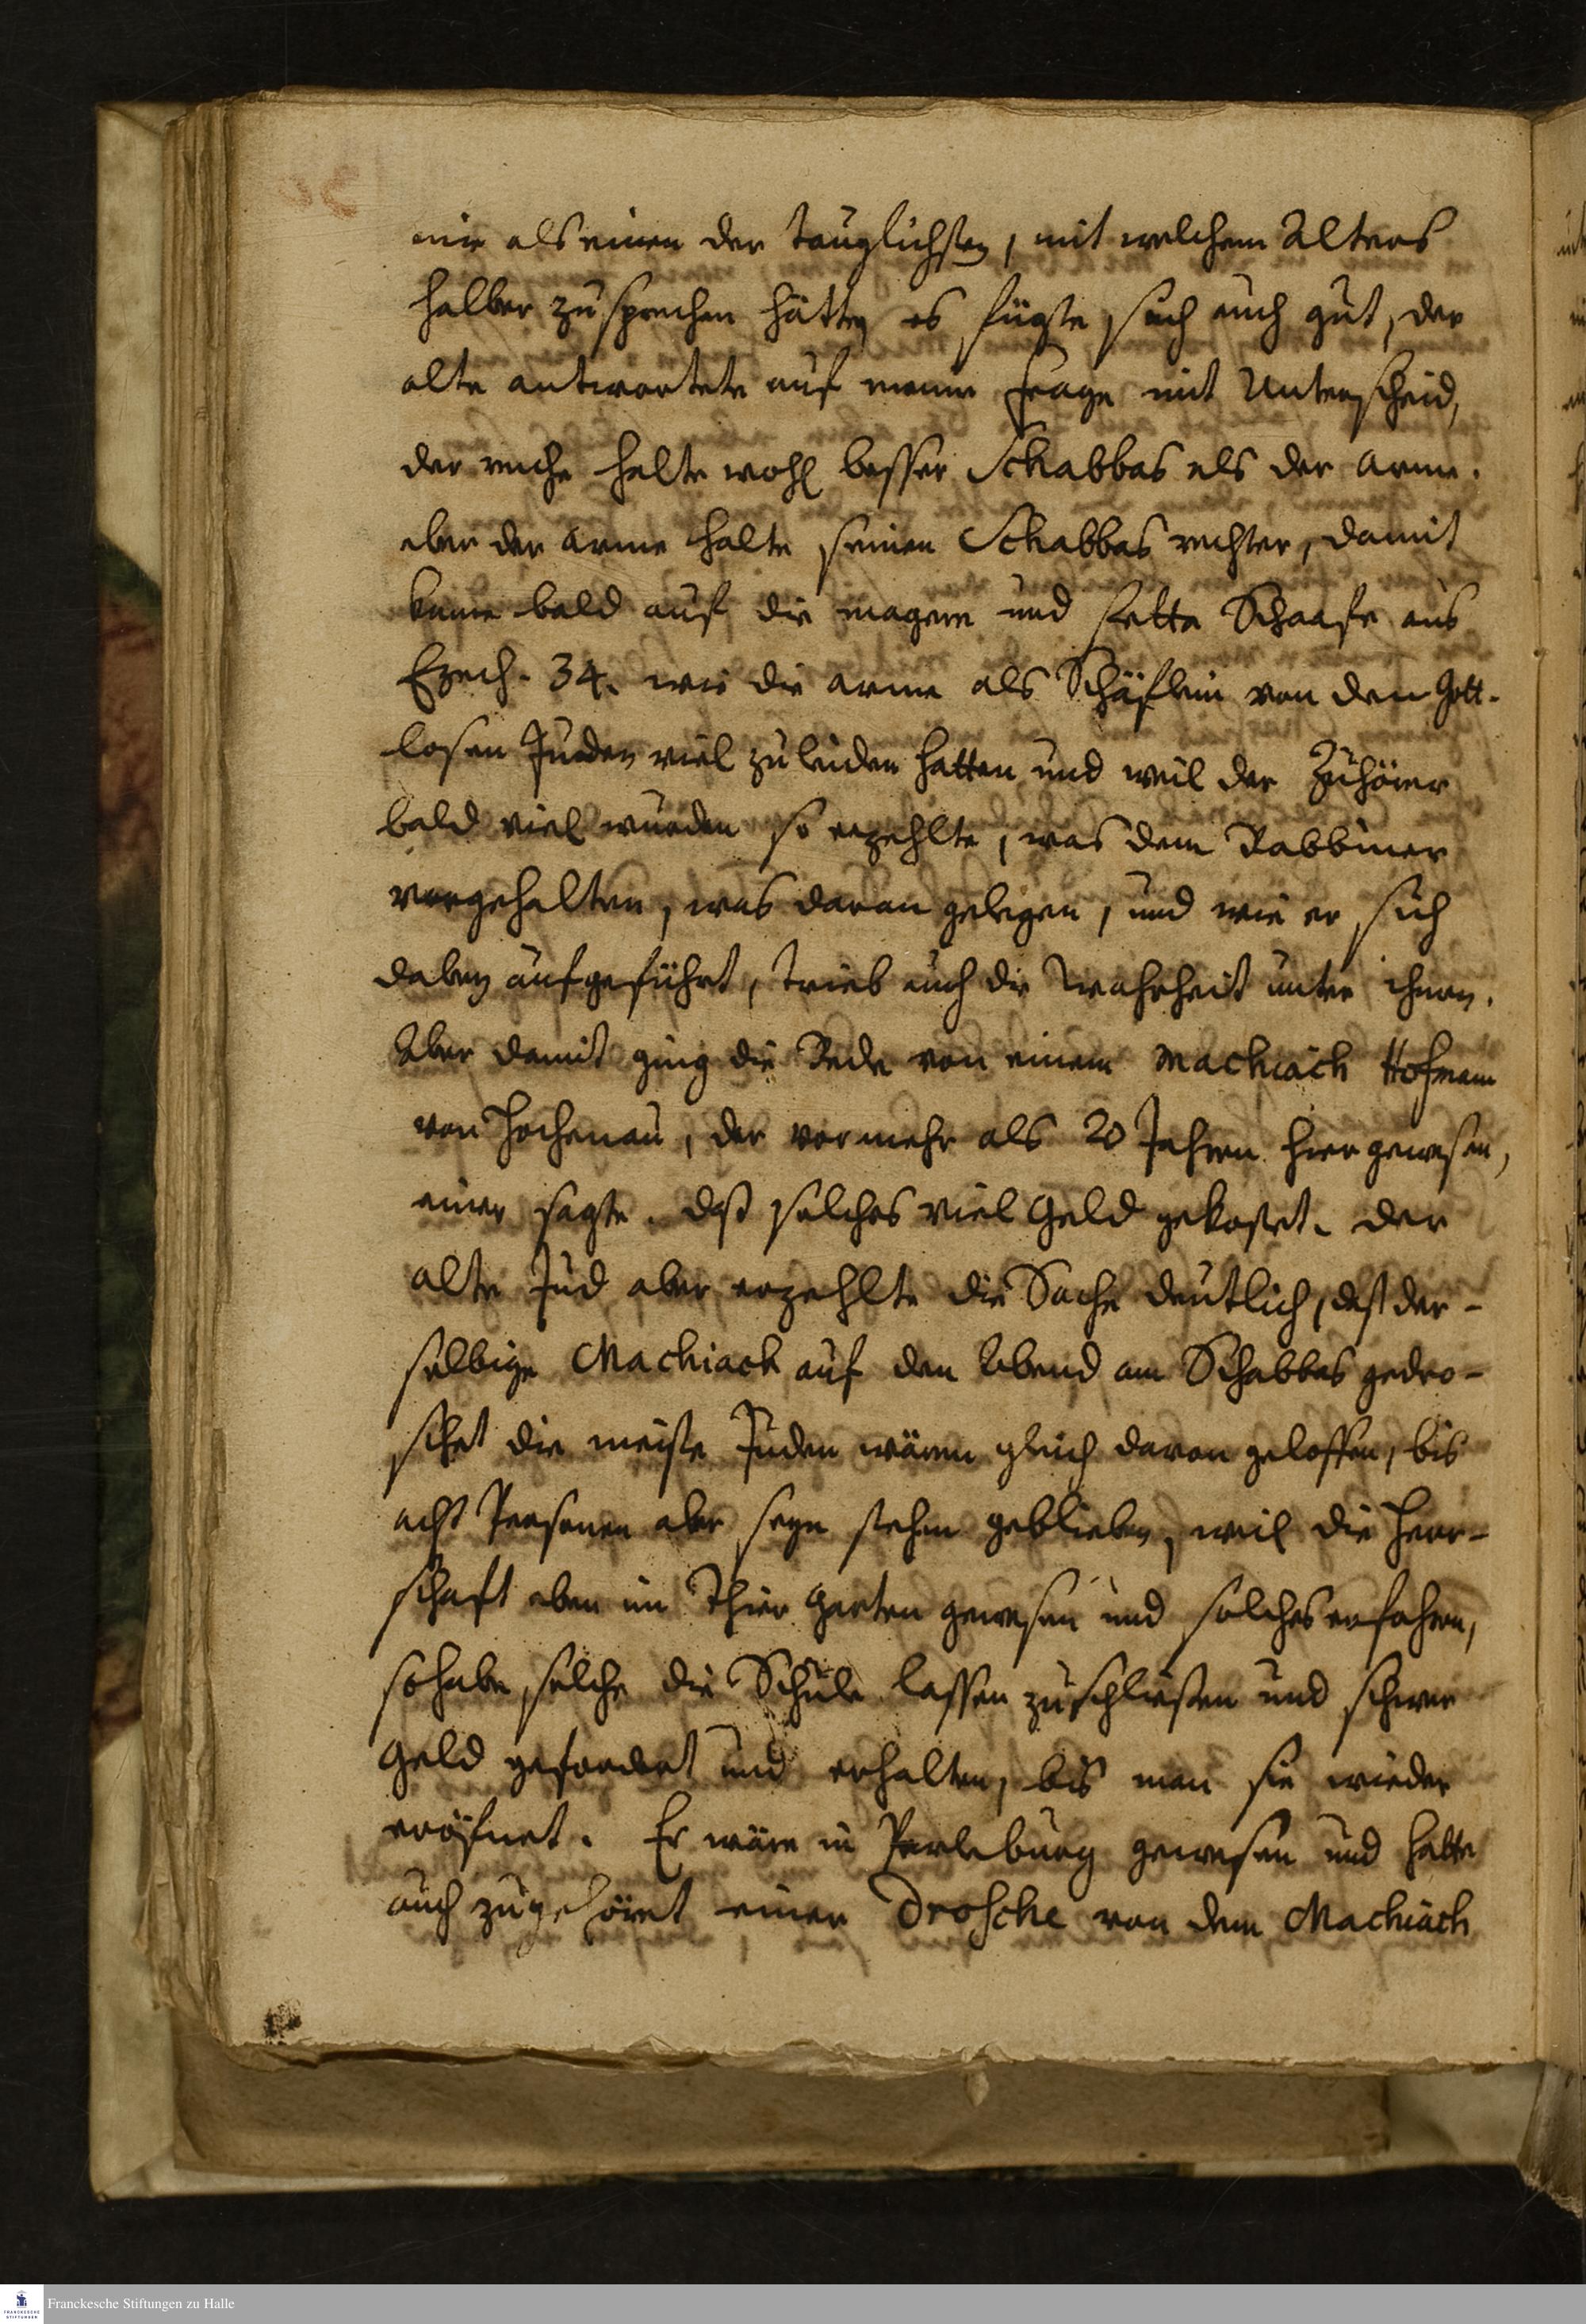 mir als einen der tauglichsten, mit welchem Alters
halber zu sprechen hätten es fügte sich auch gut, der
alte antwortete auf meine Frage mit Unterscheid,
der reiche halte wohl besser Schabbas als der arme.
aber der arme halte seinen Schabbas rechter, damit
kame bald auf die magere und fette Schaafe aus
Ezech. 34. wie die arme als Schäflein von den Gott-
losen Juden viel zu leiden hatten und weil der Zuhörer
bald viel wurden so erzehlte, was dem Rabbiner
vorgehalten, was daran gelegen, und wie er sich
dabey aufgeführt, trieb auch die Wahrheit unter ihnen.
Aber damit ging die Rede von einem Machiach Hofmann
von Hochenau, der vor mehr als 20 Jahren hier gewesen,
einer sagte. daß solches viel Geld gekostet. der
alte Jud aber erzehlte die Sache deutlich, daß der-
selbige Machiach auf den Abend am Schabbas gedro-
schet die meiste Juden wären gleich davon geloffen, bis
acht Personen aber seyn stehen geblieben, weil die Herr-
schaft eben im Thier Garten gewesen und solches erfahren,
so habe solche die Schule lassen zuschliesen und schwer
Geld gefordert und erhalten, bis man sie wieder
eröfnet. Er wäre in Perleburg gewesen und hatte
auch zugehöret einer Drosche von dem Machiach
Franckesche Stiftungen zu Halle